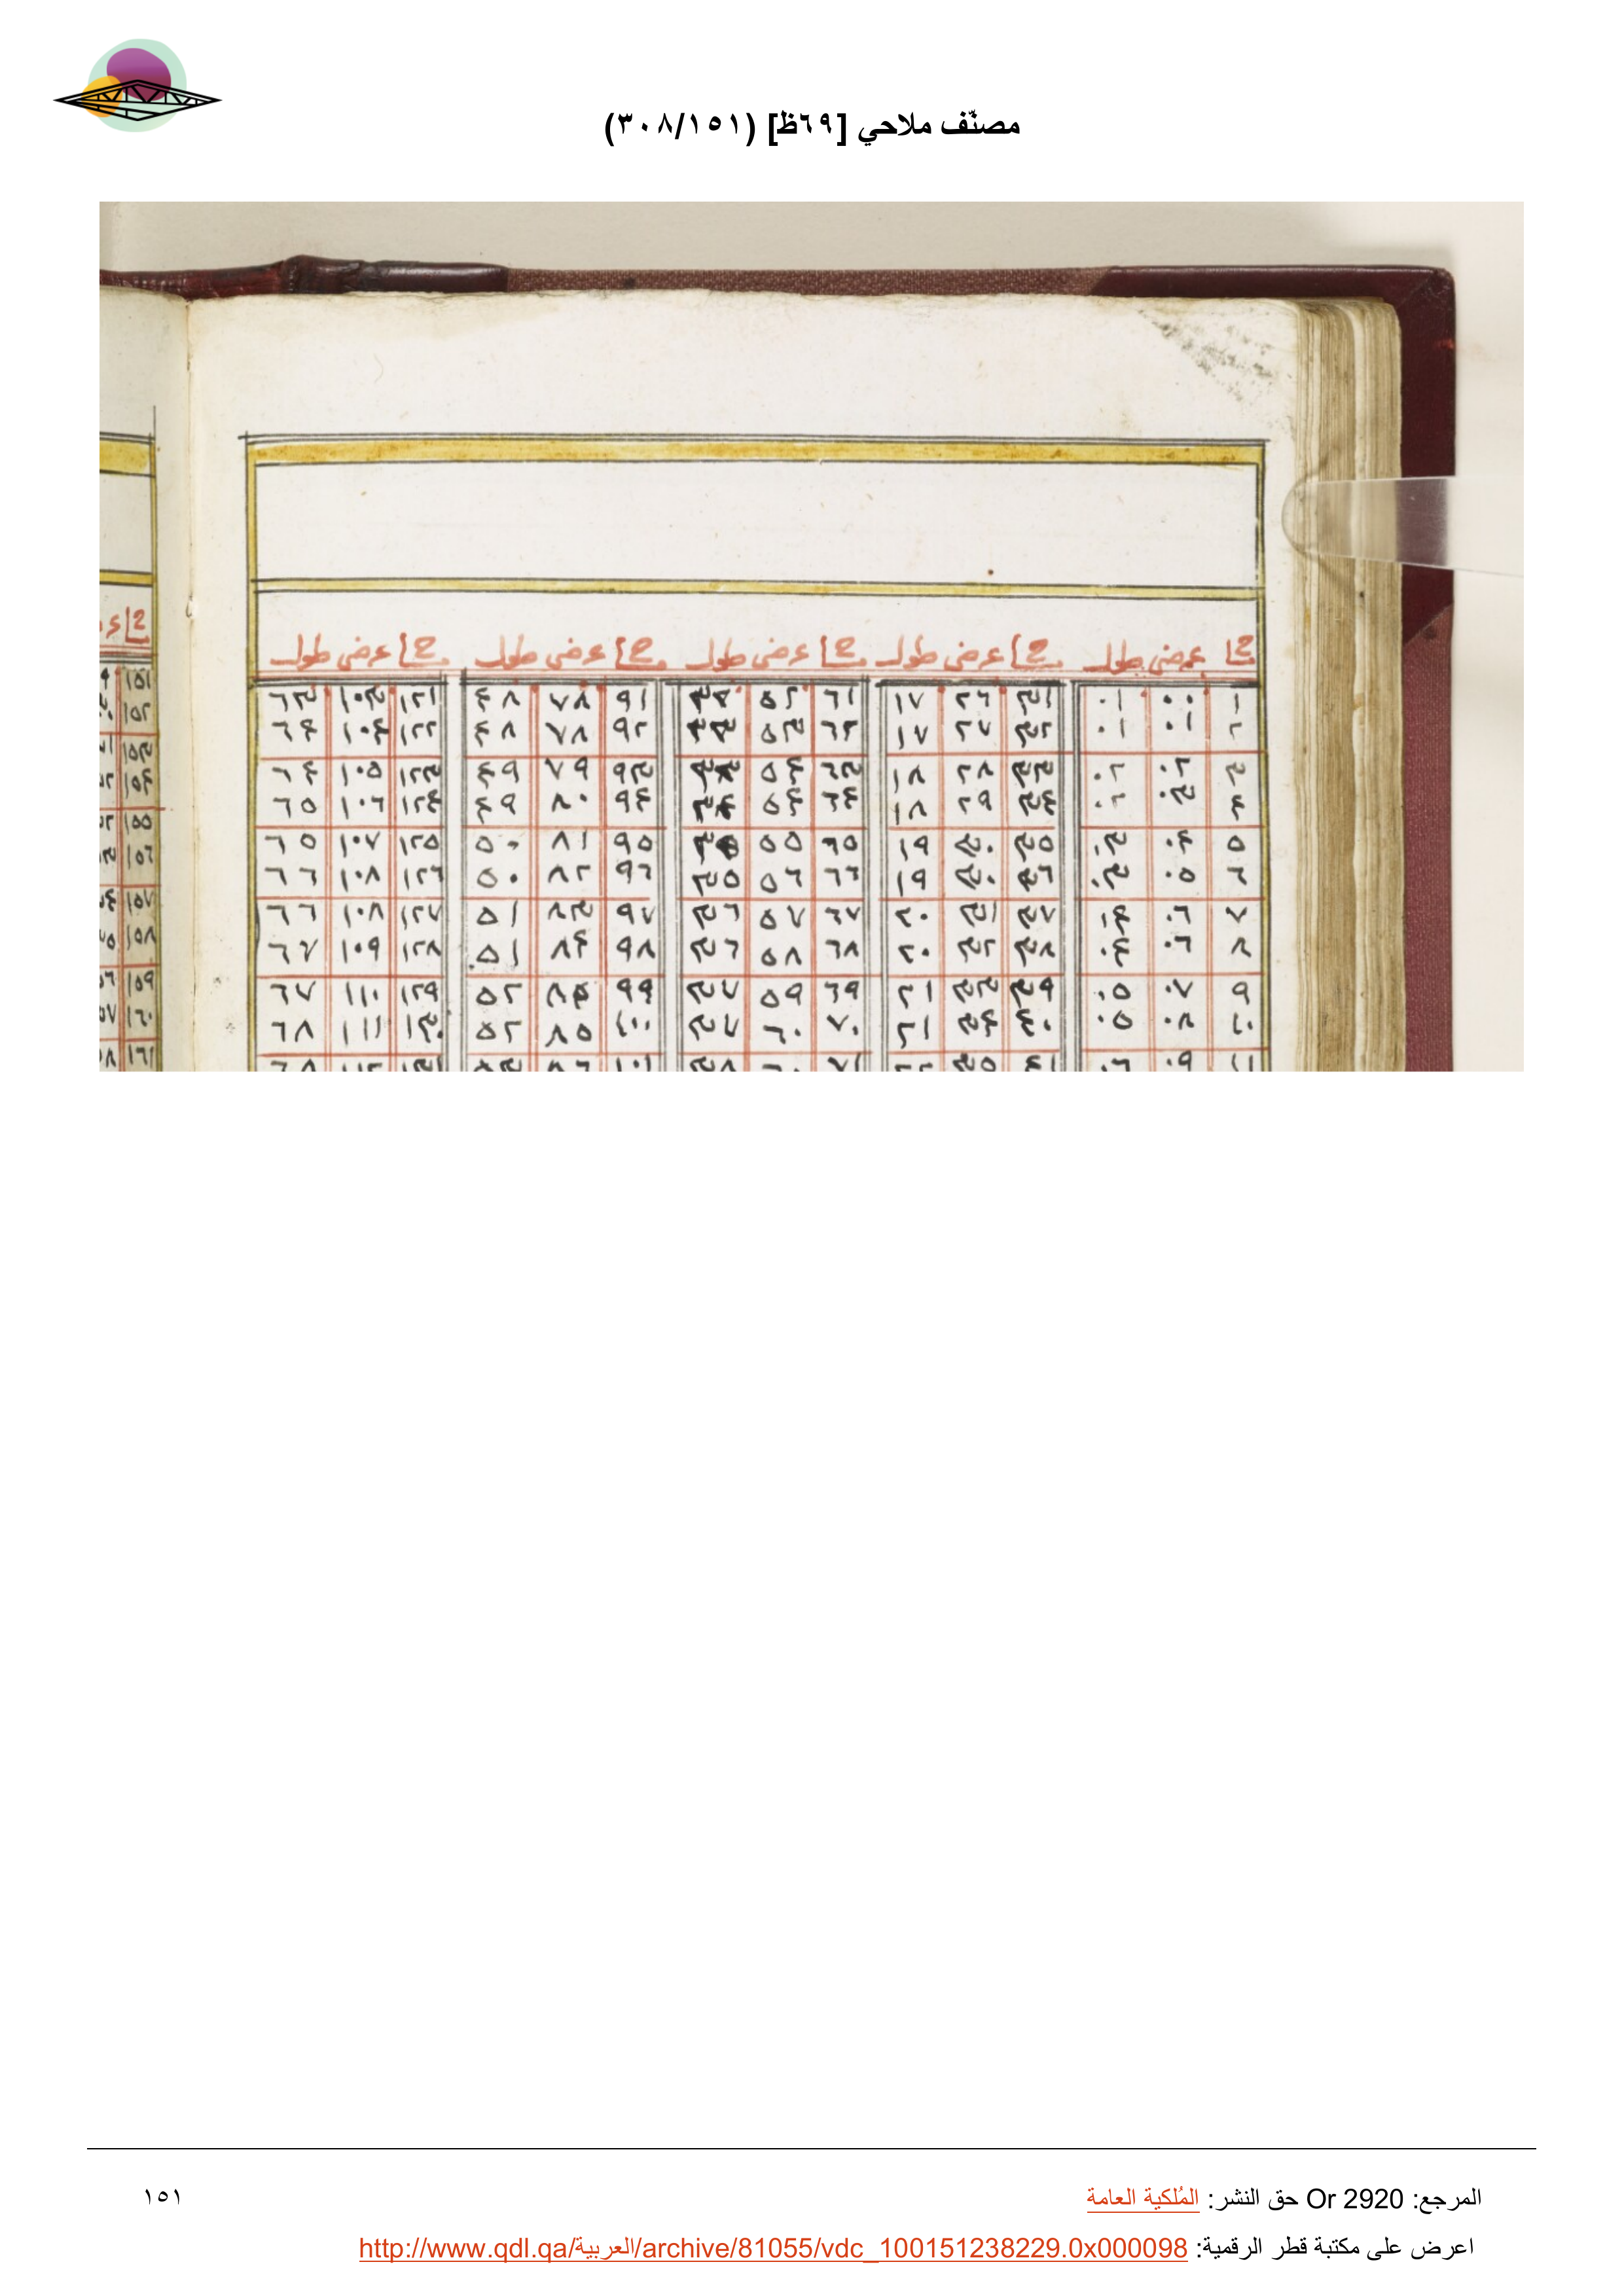 مصنّف ملاحي [٦٩ظ] (٣٠٨/١٥١)
عرض طول عرض طول عرض طول عرض طول عرض طول
١ ٠٠ ٠١ ٣١ ٢٦ ١٧ ٦١ ٥٢ ٩١ ٧٨ ٤٨ ١٢١ ١٠٣ ٦٣ ١٥١
٢ ٠١ ٠١ ٣٢ ٢٧ ١٧ ٦٢ ٥٣ ٣٣ ٩٢ ٧٨ ٤٨ ١٢٢ ١٠٤ ٦٤ ١٥٢
٣ ٠٢ ٠٢ ٣٣ ٢٨ ١٨ ٦٣ ٥٤ ٩٣ ٧٩ ٤٩ ١٢٣ ١٠٥ ٦٤ ١٥٣
٤ ٠٣ ٠٢ ٣٤ ٢٩ ١٨ ٦٤ ٥٤ ٣٤ ٩٤ ٨٠ ٤٩ ١٢٤ ١٠٦ ٦٥ ١٥٤
٥ ٠٤ ٠٣ ٣٥ ٣٠ ١٩ ٦٥ ٥٥ ٩٥ ٨١ ٥٠ ١٢٥ ١٠٧ ٦٥ ١٥٥
٦ ٠٥ ٠٣ ٣٦ ٣٠ ١٩ ٦٦ ٥٦ ٣٥ ٩٦ ٨٢ ٥٠ ١٢٦ ١٠٨ ٦٦ ١٥٦
٧ ٠٦ ٠٤ ٣٧ ٣١ ٢٠ ٦٧ ٥٧ ٣٦ ٩٧ ٨٣ ٥١ ١٢٧ ١٠٨ ٦٦ ١٥٧
٨ ٠٦ ٠٤ ٣٨ ٣٢ ٢٠ ٦٨ ٥٨ ٣٦ ٩٨ ٨٤ ٥١ ١٢٨ ١٠٩ ٦٧ ١٥٨
٩ ٠٧ ٠٥ ٣٩ ٣٣ ٢١ ٦٩ ٥٩ ٣٧ ٩٩ ٨٤ ٥٢ ١٢٩ ١١٠ ٦٧ ١٥٩
١٠ ٠٨ ٠٥ ٤٠ ٣٤ ٢١ ٧٠ ٦٠ ٣٧ ١٠٠ ٨٥ ٥٢ ١٣٠ ١١١ ٦٨ ١٦٠
١١ ٠٩ ٠٦ ٤١ ٣٥ ٢٢ ٧١ ٦٠ ٣٨ ١٠١ ٨٦ ٥٣ ١٣١ ١١٢ ٦٨ ١٦١
المرجع: Or 2920 حق النشر: المُلكية العامة
١٥١
اعرض على مكتبة قطر الرقمية: http://www.qdl.qa/العربية/archive/81055/vdc_100151238229.0x000098